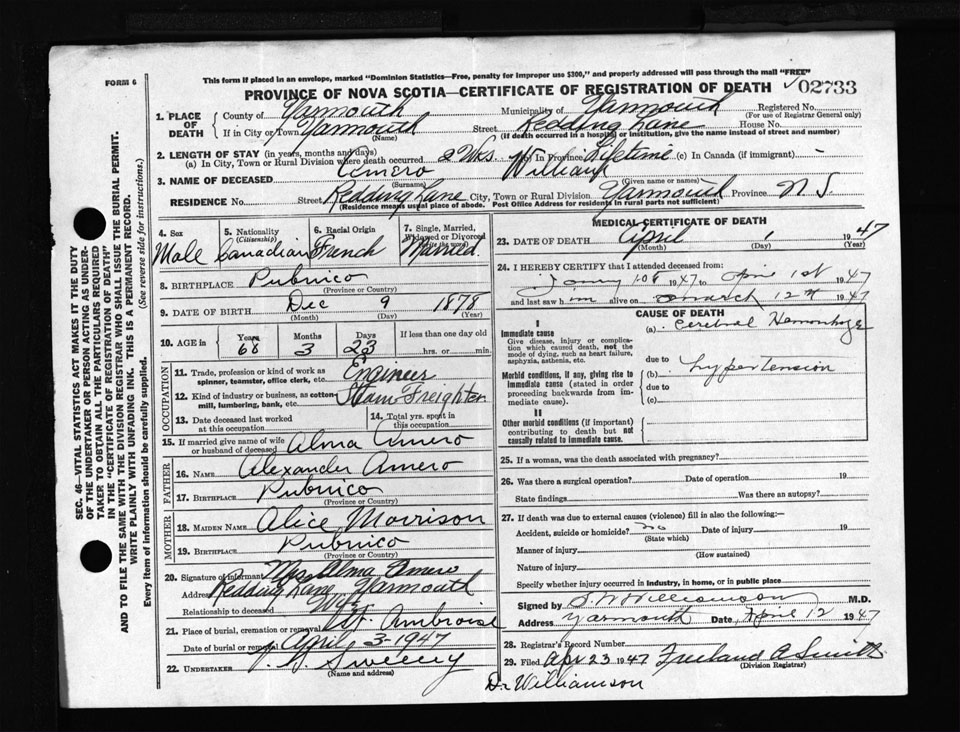 FORM 6
This form if placed in an envelope, marked "Dominion Statistics—Free, penalty for improper use $300," and properly addressed will pass through the mail "FREE"
PROVINCE OF NOVA SCOTIA—CERTIFICATE OF REGISTRATION OF DEATH 02733
1. PLACE OF DEATH { County of Yarmouth Municipality of Yarmouth Registered No.
(For use of Registrar General only)
If in City or Town Yarmouth Street Redding Lane House No.
(Name) (If death occurred in a hospital or institution, give the name instead of street and number)
2. LENGTH OF STAY (in years, months and days)
(a) In City, Town or Rural Division where death occurred 2 Wks. (b) In Province Lifetime (c) In Canada (if immigrant) -
3. NAME OF DECEASED Amero William
(Surname) (Given name or names)
RESIDENCE No. Street Redding Lane City, Town or Rural Division Yarmouth Province N S.
(Residence means usual place of abode. Post Office Address for residents in rural parts not sufficient)
4. Sex Male
5. Nationality (Citizenship) Canadian
6. Racial Origin French
7. Single, Married, Widowed or Divorced (Write the word) Married.
8. BIRTHPLACE Pubnico
(Province or Country)
9. DATE OF BIRTH Dec 9 1878
(Month) (Day) (Year)
10. AGE in { Years 68 Months 3 Days 23 If less than one day old hrs. or min.
11. Trade, profession or kind of work as spinner, teamster, office clerk, etc. Engineer
12. Kind of industry or business, as cotton mill, lumbering, bank, etc. Steam Freighter
13. Date deceased last worked at this occupation
14. Total yrs. spent in this occupation
15. If married give name of wife or husband of deceased Alma Amero
FATHER
16. NAME Alexander Amero
17. BIRTHPLACE Pubnico
(Province or Country)
MOTHER
18. MAIDEN NAME Alice Morrison
19. BIRTHPLACE Pubnico
(Province or Country)
20. Signature of informant Mrs Alma Amero
Address Redding Lane Yarmouth
Relationship to deceased Wife
21. Place of burial, cremation or removal St. Ambroise
Date of burial or removal April 3-1947
22. UNDERTAKER Sweeny
(Name and address)
MEDICAL CERTIFICATE OF DEATH
23. DATE OF DEATH April 1 1947
(Month) (Day) (Year)
24. I HEREBY CERTIFY that I attended deceased from
1947 to April 1st 1947
and last saw him alive on March 12th 1947
CAUSE OF DEATH
I
Immediate cause (a) Cerebral Hemorrhage
Give disease, injury or complication which caused death, not the mode of dying, such as heart failure, asphyxia, asthenia, etc.
due to
Morbid conditions, if any, giving rise to immediate cause (stated in order proceeding backwards from immediate cause). (b) Hypertension
due to
(c)
II
Other morbid conditions (if important) contributing to death but not causally related to immediate cause.
25. If a woman, was the death associated with pregnancy?
26. Was there a surgical operation? Date of operation 19
State findings Was there an autopsy?
27. If death was due to external causes (violence) fill in also the following:—
Accident, suicide or homicide? no Date of injury 19
(State which)
Manner of injury
(How sustained)
Nature of injury
Specify whether injury occurred in industry, in home, or in public place
Signed by S. W Williamson M.D.
Address Yarmouth Date April 12 1947
28. Registrar's Record Number
29. Filed Apr 23 1947 Freeland A Smith
(Division Registrar)
Dr Williamson
SEC. 46—VITAL STATISTICS ACT MAKES IT THE DUTY
OF THE UNDERTAKER OR PERSON ACTING AS UNDER-
TAKER TO OBTAIN ALL THE PARTICULARS REQUIRED
IN THE "CERTIFICATE OF REGISTRATION OF DEATH"
AND TO FILE THE SAME WITH THE DIVISION REGISTRAR WHO SHALL ISSUE THE BURIAL PERMIT.
WRITE PLAINLY WITH UNFADING INK. THIS IS A PERMANENT RECORD.
Every item of information should be carefully supplied. (See reverse side for instructions.)